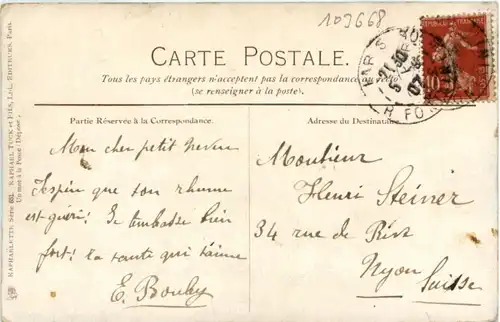 109668
CARTE POSTALE.
Tous les pays étrangers n'acceptent pas la correspondance au recto
(se renseigner à la poste).
Partie Réservée à la Correspondance.
Mon cher petit neveu
J'espère que ton rhume
est guéri! Je t'embrasse bien
fort! ta tante qui t'aime
E. Bouby
Adresse du Destinataire.
Monsieur
Henri Steiner
34 rue de Rive
Nyon Suisse
PARIS
10
RAPHAELLETTE Série 603. RAPHAEL TUCK et FILS, Ltd., EDITEURS, Paris.
Un mot à la Poste (Déposé).